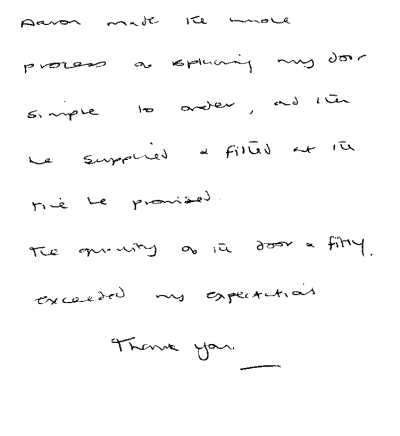 Aaron made the whole
process of replacing my door
simple to order, and then
he supplied & fitted at the
time he promised.
The quality of the door & fitting.
exceeded my expectations
Thank you.